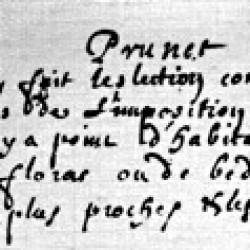 Prunet
fait leslection con
de l'imposition
y a point d'habita
floras ou de bed
plus proches